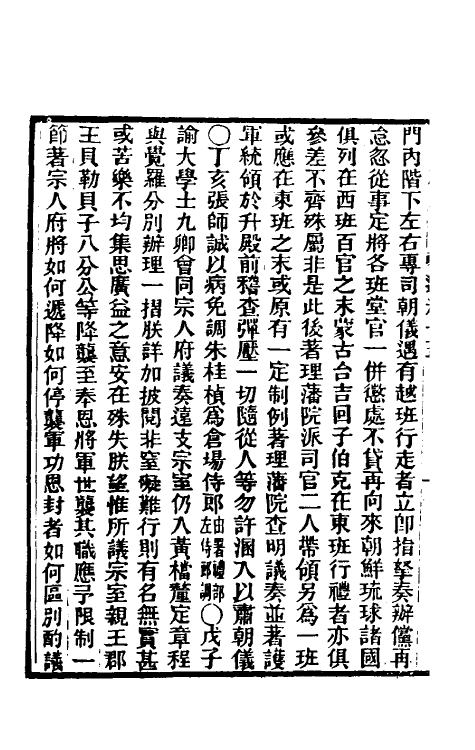 門內階下左右專司朝儀遇有越班行走者立卽指拏奏辦儻再
怠忽從事定將各班堂官一併懲處不貸再向來朝鮮琉球諸國
俱列在西班百官之末蒙古台吉回子伯克在東班行禮者亦俱
參差不齊殊屬非是此後著理藩院派司官二人帶領另爲一班
或應在東班之末或原有一定制例著理藩院查明議奏並著護
軍統領於升殿前稽查彈壓一切隨從人等勿許溷入以肅朝儀
〇丁亥張師誠以病免調朱桂楨爲倉場侍郎由署禮部左侍郎調〇戊子
諭大學士九卿會同宗人府議奏遠支宗室仍入黃檔釐定章程
與覺羅分別辦理一摺朕詳加披閱非窒礙難行則有名無實甚
或苦樂不均集思廣益之意安在殊失朕望惟所議宗室親王郡
王貝勒貝子八分公等降襲至奉恩將軍世襲其職應予限制一
節著宗人府將如何遞降如何停襲軍功恩封者如何區別酌議